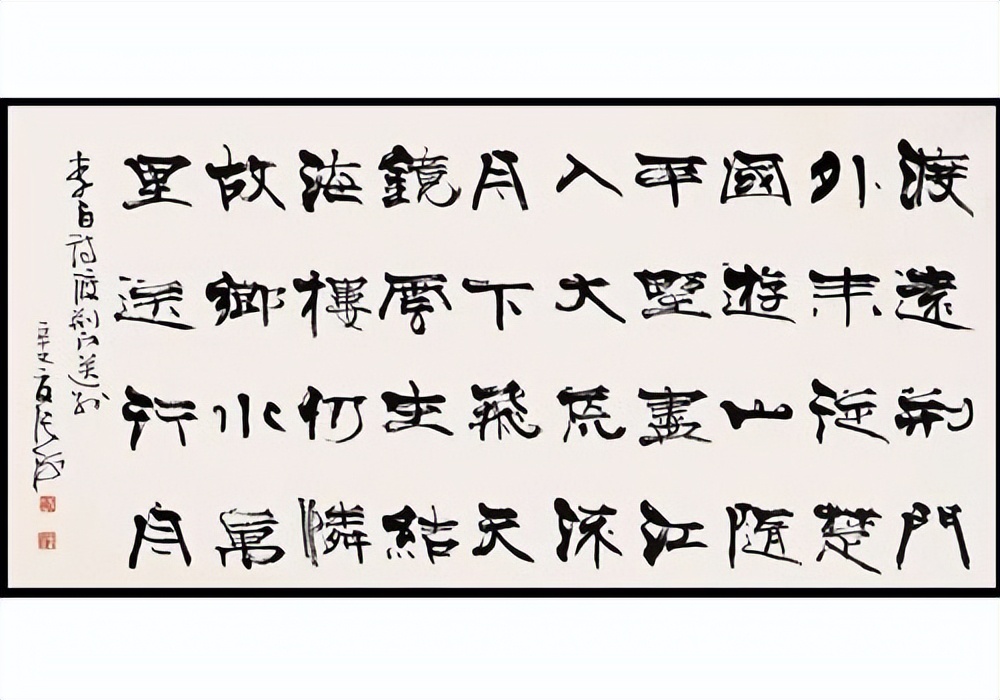 渡遠荆門
外来從楚
國遊山隨
平野盡江
入大荒流
月下飛天
鏡雲生結
海樓仍憐
故鄉水萬
里送行舟
李白詩渡荆門送别
辛丑夏张海